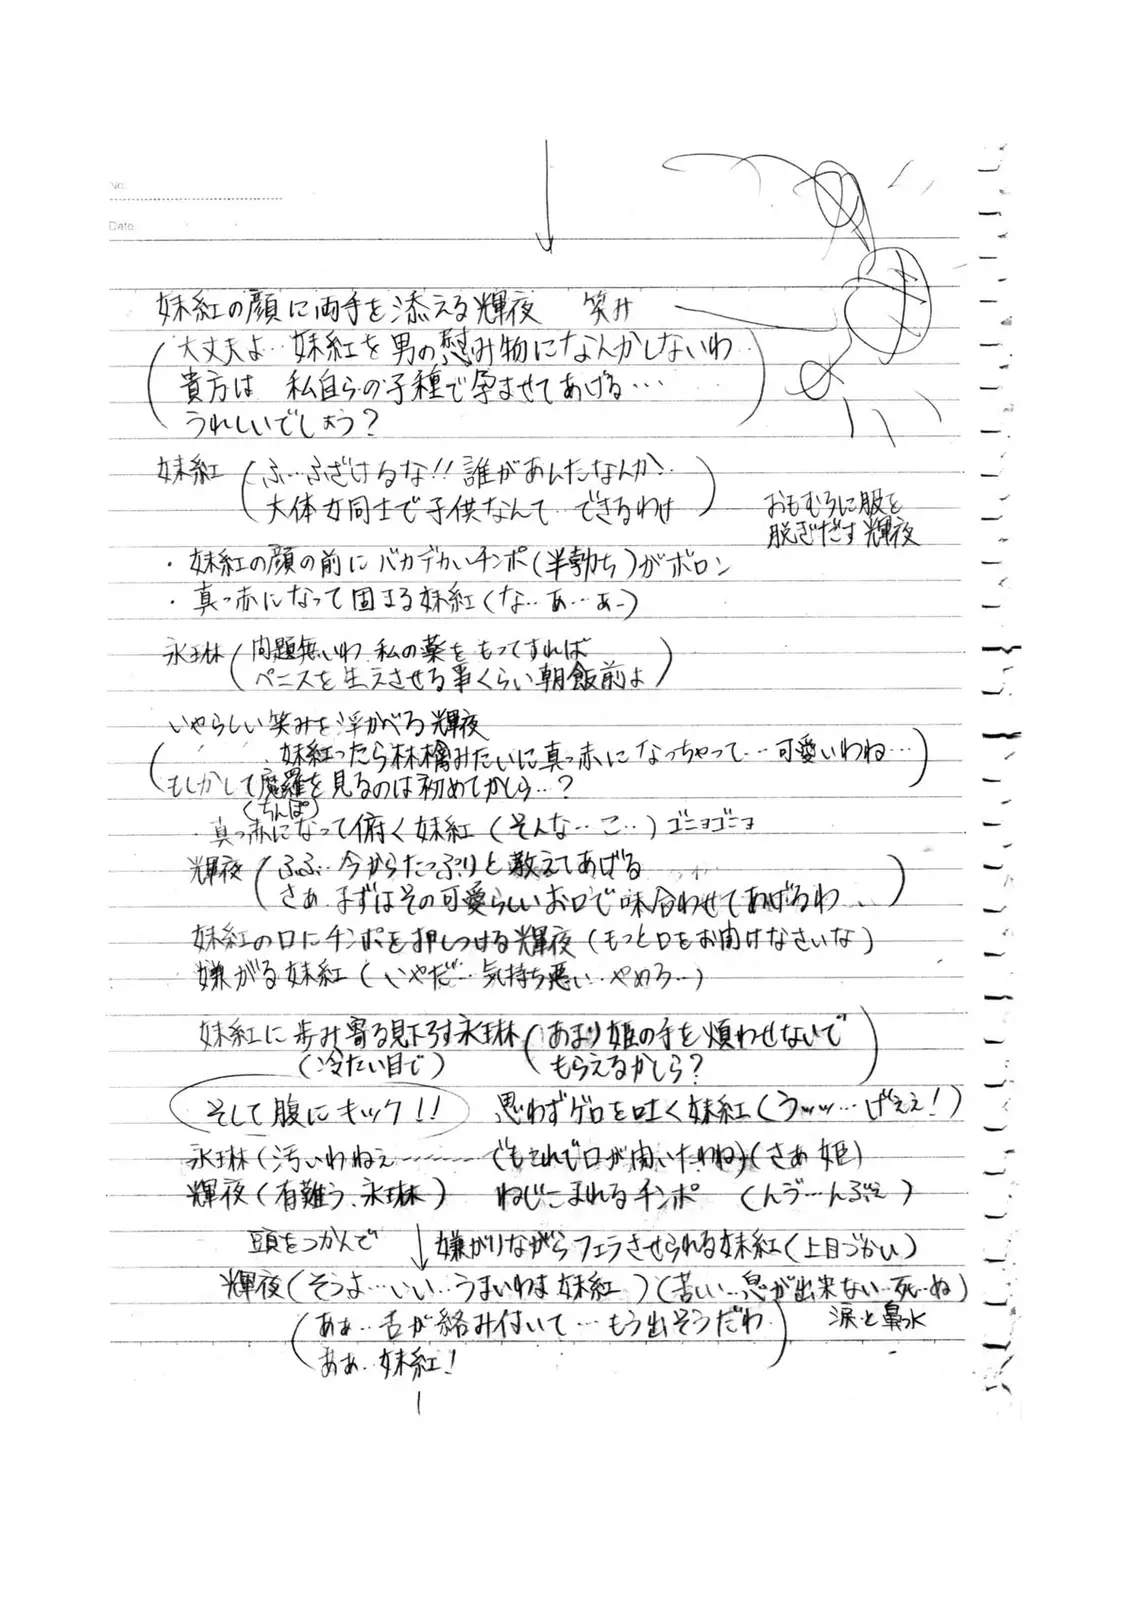 No.
Date
妹紅の顔に両手を添える輝夜　笑み
大丈夫よ…妹紅を男の慰み物になんかしないわ
貴方は　私自らの子種で孕ませてあげる…
うれしいでしょう?
妹紅(ふ…ふざけるな!!誰があんたなんか!
大体女同士で子供なんて…できるわけ)
おもむろに服を
脱ぎだす輝夜
・妹紅の顔の前にバカデカいチンポ(半勃ち)がボロン
・真っ赤になって固まる妹紅(な…あ…あ…)
永琳(問題無いわ 私の薬をもってすれば
ペニスを生えさせる事くらい朝飯前よ)
いやらしい笑みを浮かべる輝夜
(妹紅ったら林檎みたいに真っ赤になっちゃって…可愛いわね…
もしかして魔羅を見るのは初めてかしら…?)
(ちんぽ)
・真っ赤になって俯く妹紅(そんな…こ…)ゴニョゴニョ
輝夜(ふふ…今からたっぷりと教えてあげる
さあ.まずはその可愛らしいお口で味合わせてあげるわ…)
妹紅の口にチンポを押しつける輝夜(もっと口をお開けなさいな)
嫌がる妹紅(いやだ…気持ち悪い…やめろ…)
妹紅に歩み寄る見下ろす永琳(あまり姫の手を煩わせないで
(冷たい目で)　もらえるかしら?)
そして腹にキック!!　思わずゲロを吐く妹紅(うッッ…げぇぇ!)
永琳(汚いわねぇ………でもそれで口が開いたわね)(さあ 姫)
輝夜(有難う、永琳)　ねじこまれるチンポ　(んう…んぶぇ)
頭をつかんで　嫌がりながらフェラさせられる妹紅(上目づかい)
輝夜(そうよ…いい…うまいわよ妹紅)(苦しい…息が出来ない…死…ぬ)
(あぁ…舌が絡み付いて…もう出そうだわ　涙と鼻水
ああ…妹紅!)